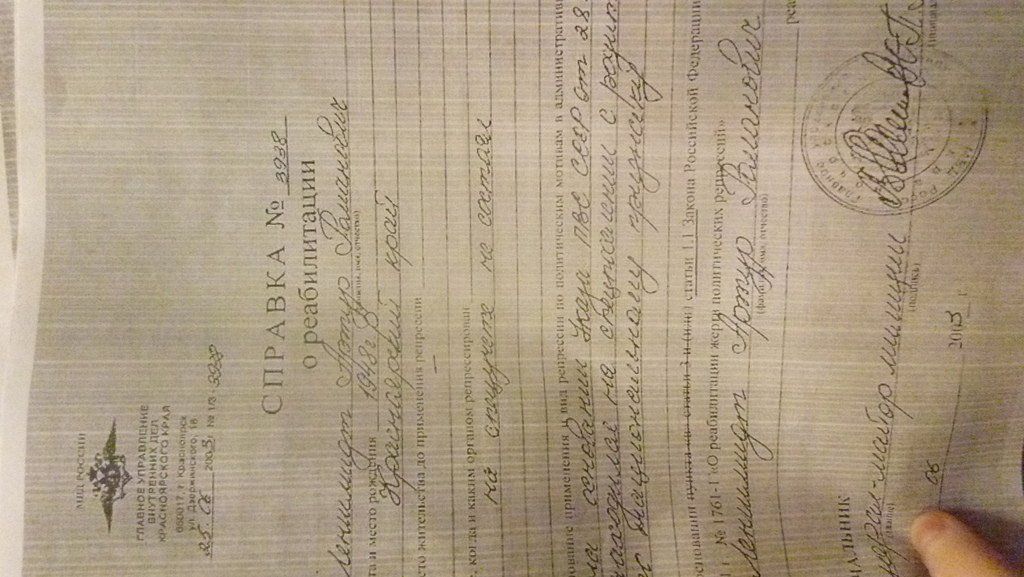 МВД РОССИИ
ГЛАВНОЕ УПРАВЛЕНИЕ
ВНУТРЕННИХ ДЕЛ
КРАСНОЯРСКОГО КРАЯ
660017, г. Красноярск
ул. Дзержинского, 18
25.06 2003. № 1/3-3938
СПРАВКА № 3938
о реабилитации
Артур Романович
(фамилия, имя, отчество)
та и место рождения 1948 г.
Красноярский край
сто жительства до применения репрессии –
, когда и каким органом репрессирован
на спецучете не состоял
нование применения и вид репрессии по политическим мотивам в административ
на основании Указа ПВС СССР от 28.
находился на спецпоселении с родит
национальному признаку
основании пункта по статьи 3 и (или) статьи 1.1 Закона Российской Федерации
№ 1761-1 «О реабилитации жертв политических репрессий»
Артур Романович
(фамилия, имя, отчество)
реа
АЛЬНИК
майор милиции
(звание)
(подпись)
06 2003 г.